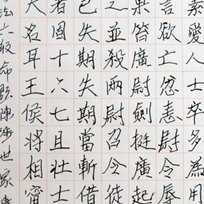 愛人士卒多為用
欲亡忿恚尉令辱
笞廣尉劍挺廣起
並殺兩尉召令徒
失期失期當斬借
固十六七且壯士
大名耳王侯將相甯
陳涉世家